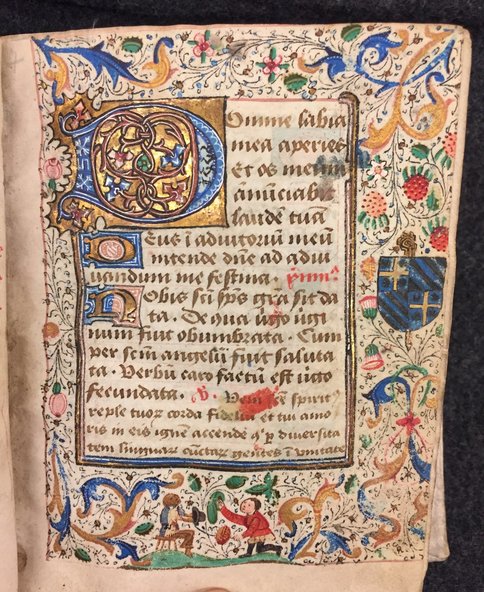 Domine labia
mea aperies
Et os meum
ānūciabit
laudē tuā
Deus ī adiutoriū meū
intende dn̄e ad adiu
uandum me festina. ymn᷒.
Nobis sci sp̄s gr̄a sit da
ta. De qua ūgo ūgi
num fuit obumbrata. Cum
per scm̄ angelū fuit saluta
ta. Verbū caro factū est ūgo
fecundata. Veni scē spirit
reple tuoꝝ corda fideliū et tui amo
ris in eis ignē accende q̇ p diuersita
tem linguaꝝ cūctaꝝ gentes ī vnitate